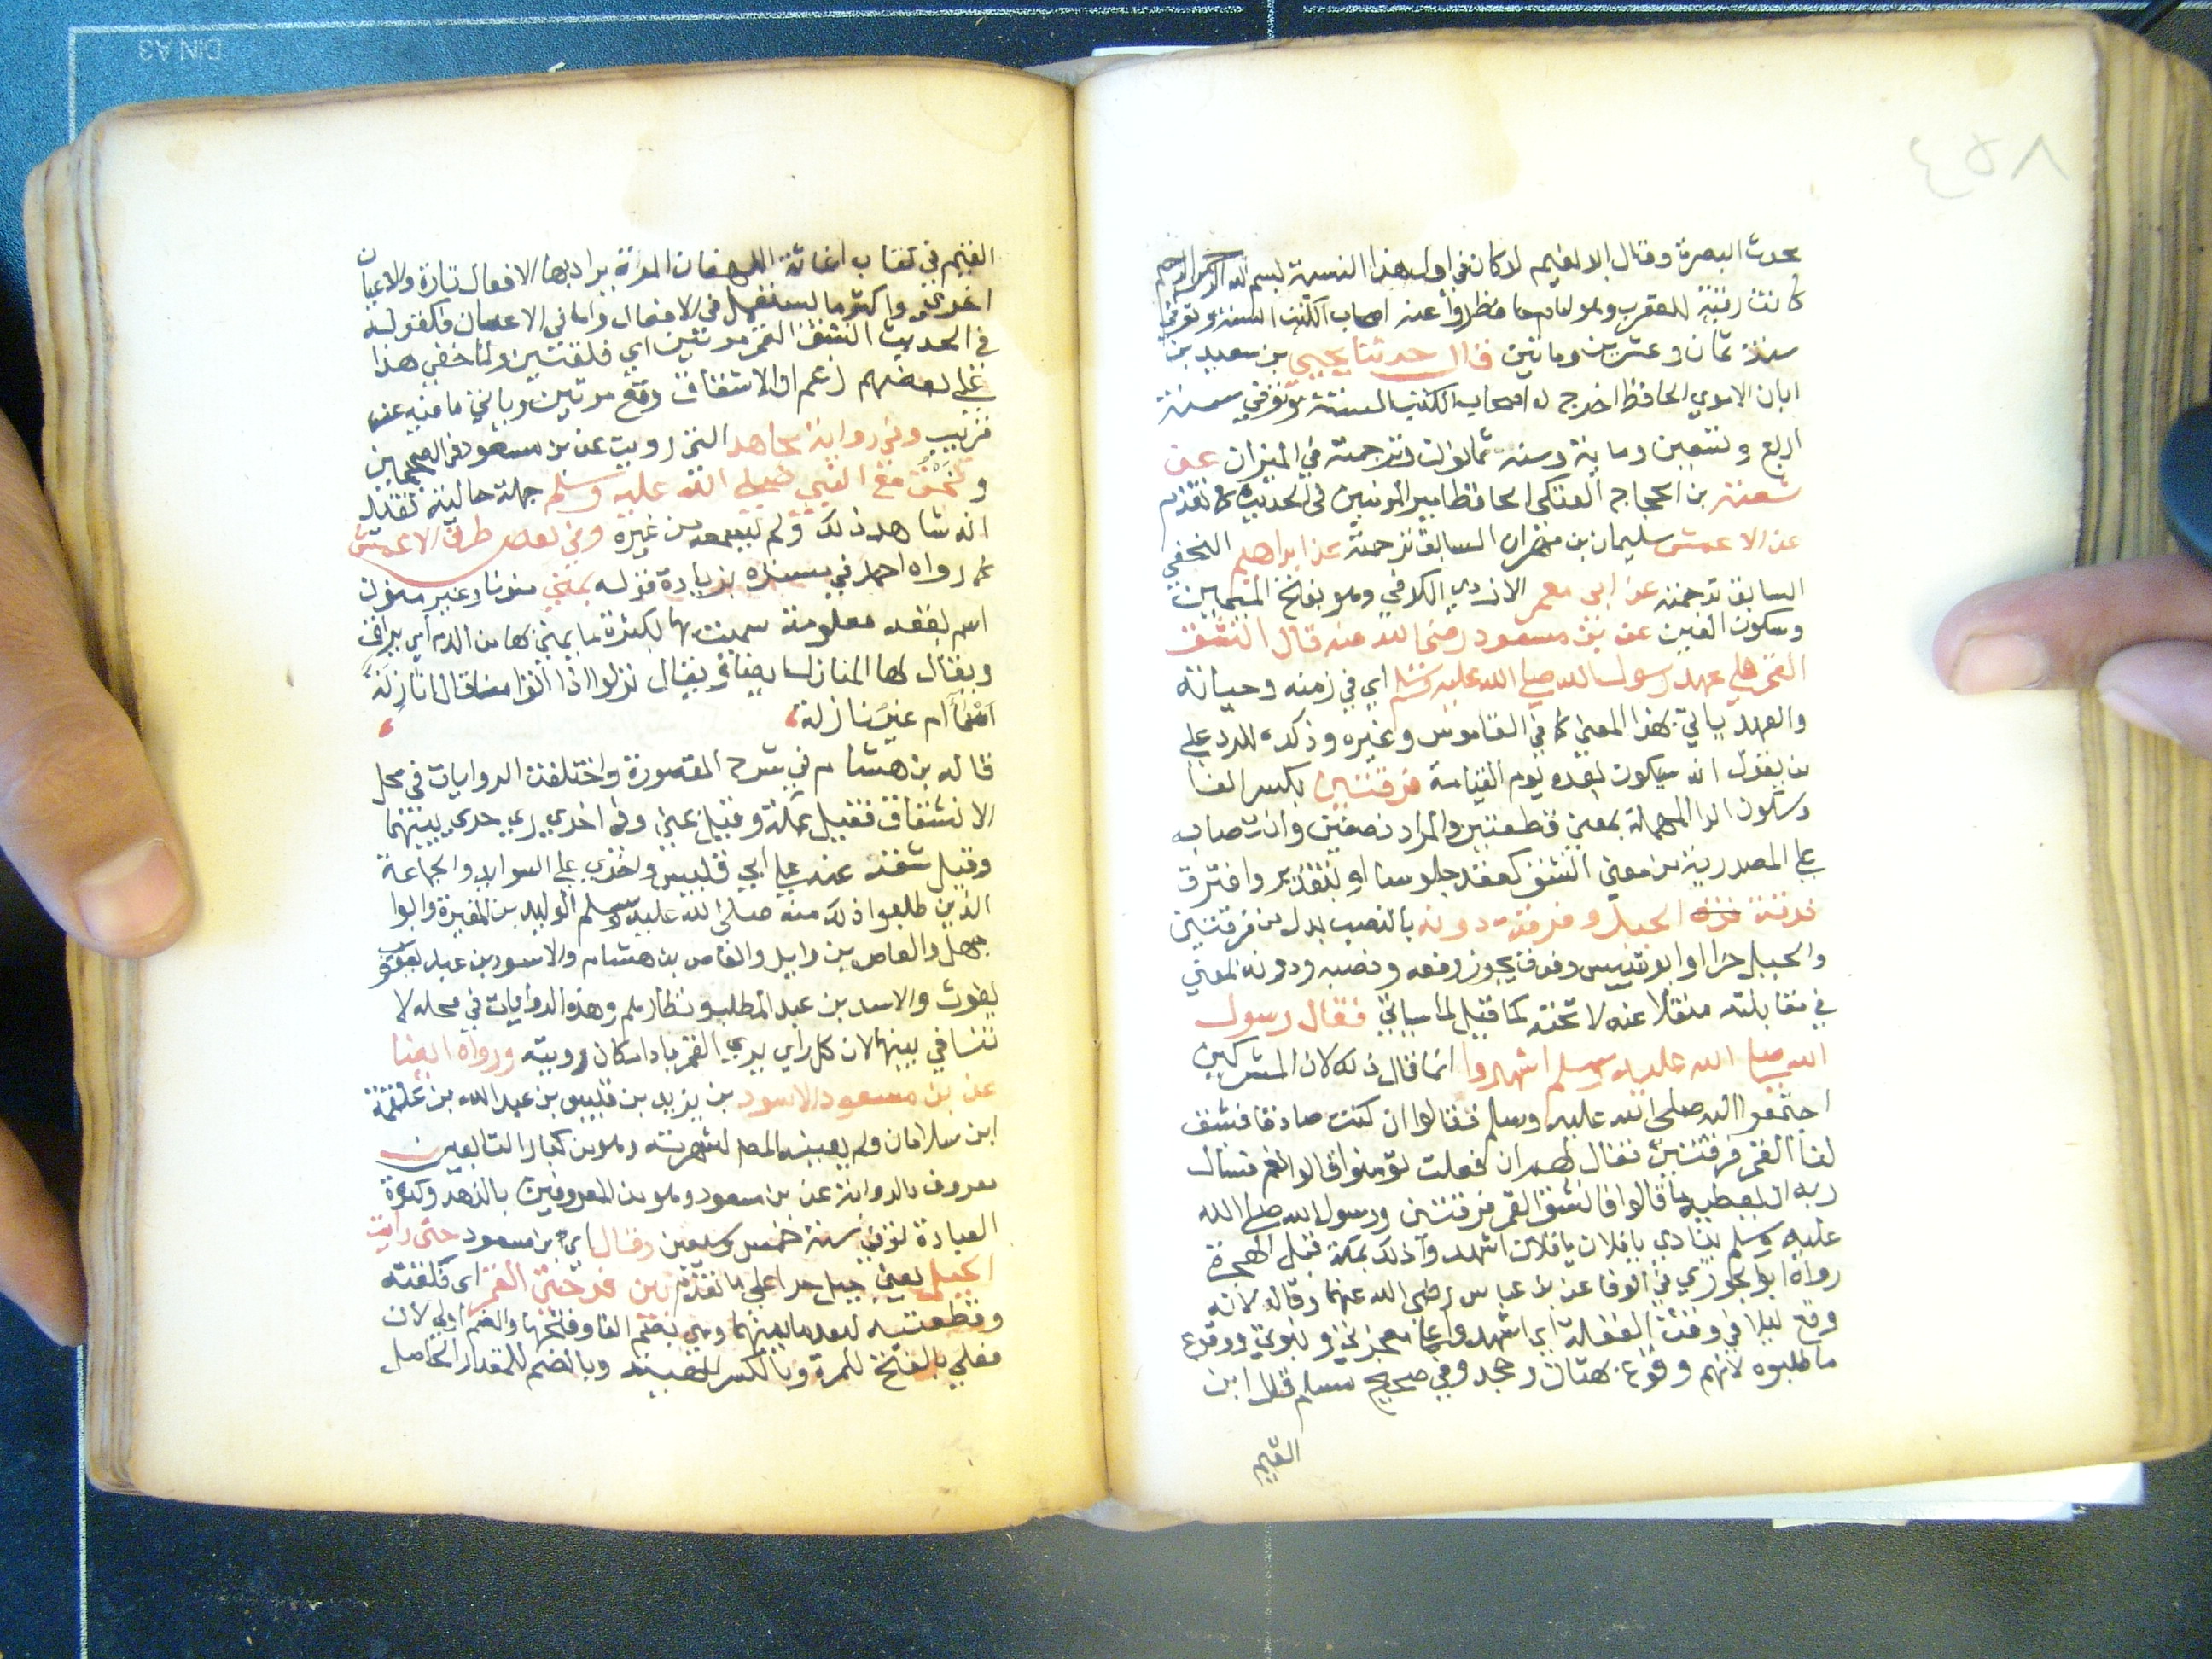 ٤٥٨
محدث البصرة وقال ابو لو كان في اول هذا النسبة بسم الله الرحمن الرحيم
كانت رقية للعقرب وهو امام حافظ روا عنه اصحاب الكتب الستة وتوفي
سنة ثمان وعشرين ومائتين قال حدثنا يحيي بن سعيد بن
ابان الاموي الحافظ اخرج له اصحاب الكتب الستة وتوفي سنة
اربع وتسعين وماية وسنه ثمانون وترجمته في الميزان عن
شعبة بن الحجاج العتكي الحافظ امير المومنين في الحديث كما تقدم
عن الاعمش سليمان بن مهران السابق ترجمته عن ابراهيم النخعي
السابق ترجمته عن ابى معمر الازدي الكوفي وهو بفتح الميمين
وسكون العين عن بن مسعود رضي الله عنه قال انشق
القمر على عهد رسول الله صلى الله عليه وسلم اي في زمنه وحياته
والعهد ياتي بهذا المعني كما في القاموس وغيره وذكره للرد على
من يقول انه سيكون بعده يوم القيامة فرقتين بكسر الفا
وسكون الرا المهملة بمعني قطعتين والمراد نصفين وانتصابه
على المصدرية من معني انشق كقعد جلوسا او بتقدير وافترق
فرقتة فرقة الجبل وفرقة دونه بالنصب بدل من فرقتين
والجبل حرا او ابو قبيس وفوق يجوز رفعه ونصبه ودونه المعني
في مقابلته منفلا عنه لا تحته كما قيل لما سياتي فقال رسول
الله صلى الله عليه وسلم اشهدوا انما قال ذلك لان المشركين
اجتمعوا اليه صلى الله عليه وسلم فقالوا ان كنت صادقا فشق
لنا القمر فرقتين فقال لهم ان فعلت تؤمنوا قالوا نعم فسال
ربه ان يعطيه ما قالوا فانشق القمر فرقتين ورسول الله صلى الله
عليه وسلم ينادي يا فلان يا فلان اشهد وا وذلك بمكة قبل الهجرة
رواه ابو الجوزي في الوفا عن بن عباس رضي الله عنهما وقاله لانه
وقع ليلا في وقت الغفلة اي اشهدوا معجزتي ونبوتي ووقوع
ما طلبوه لانهم وقوع وفي صحيح مسلم قال ابن
القيم
القيم في كتاب اغاثة اللهفان المرة يراد بها الافعال تارة والاعيان
اخري واكثر ما يستعمل في الافعال واما في الاعيان فكقوله
في الحديث انشق القمر مرتين اي فلقتين ولما خفي هذا
على بعضهم زعم ان الانشقاق وقع مرتين وياتي ما فيه عن
قريب وفي رواية مجاهد التي رويت عن بن مسعود في الصحيحين
ونحن مع النبي صلى الله عليه وسلم جملة حالية تفيد
انه شاهد ذلك ولم يسمعه من غيره وفي بعض طرق الاعمش
كما رواه احمد في مسنده بزيادة قوله بمنى منونا وغير منون
اسم بقعة معلومة سميت بها لكثرة ما يمني بها من الدم اي يراق
ويقال لها المنازل ايضا ويقال نزلوا اذا اتوا منى قال انازلة
اسما ام غير نازلة
قاله بن هشام في شرح المقصورة واختلفت الروايات في محل
الانشقاق فقيل بمكة وقيل بمني وفي اخري راي حري بينهما
وقيل شقة على ابي قبيس واخري على السوايد والجماعة
الذين طلبوا ذلك منه صلى الله عليه وسلم الوليد بن المغيرة وابوا
جهل والعاص بن وايل والعاص بن هشام والاسود بن عبد يغوث
يغوث والاسد بن عبد المطلب ونظارهم وهذه الروايات في محله لا
تنافي بينها لان كل راي يري القمر باد امكان رويته ورواه ايضا
عن بن مسعود الاسود بن يزيد بن قيس بن عبد الله بن علقمة
ابن سلامان ولم يعينه المص لشهرته وهو من كبار التابعين
معروف بالرواية عن بن مسعود وهو من المعروفين بالزهد وكثرة
العبادة توفي سنة خمس وسبعين وقال اي بن مسعود حتى رايت
الجبل يعني جبل حرا على ما تقدم بين فرجتى القمر اى فلقتيه
وقطعتيه لبعد ما بينهما وهي بضم الفا وفتحها والضم اولي لان
فعلي بالفتح للمرة وبالكسر للهيئة وبالضم للمقدار الحاصل